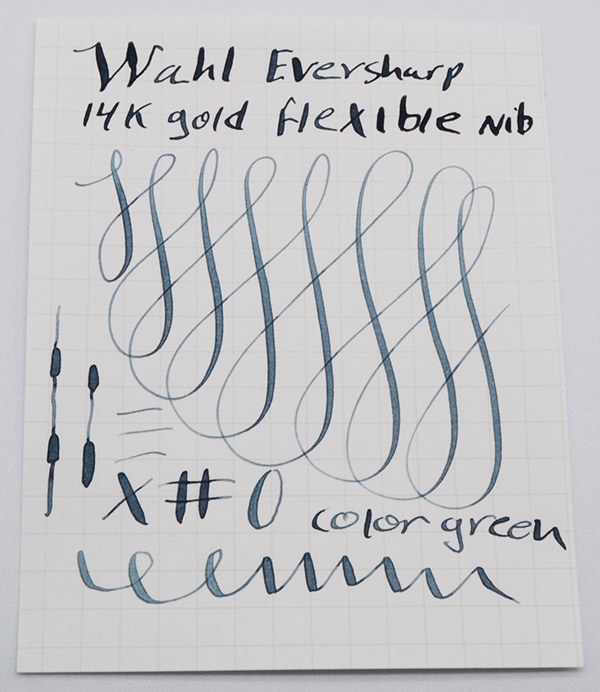 Wahl Eversharp
14K gold flexible nib
X # 0
color green